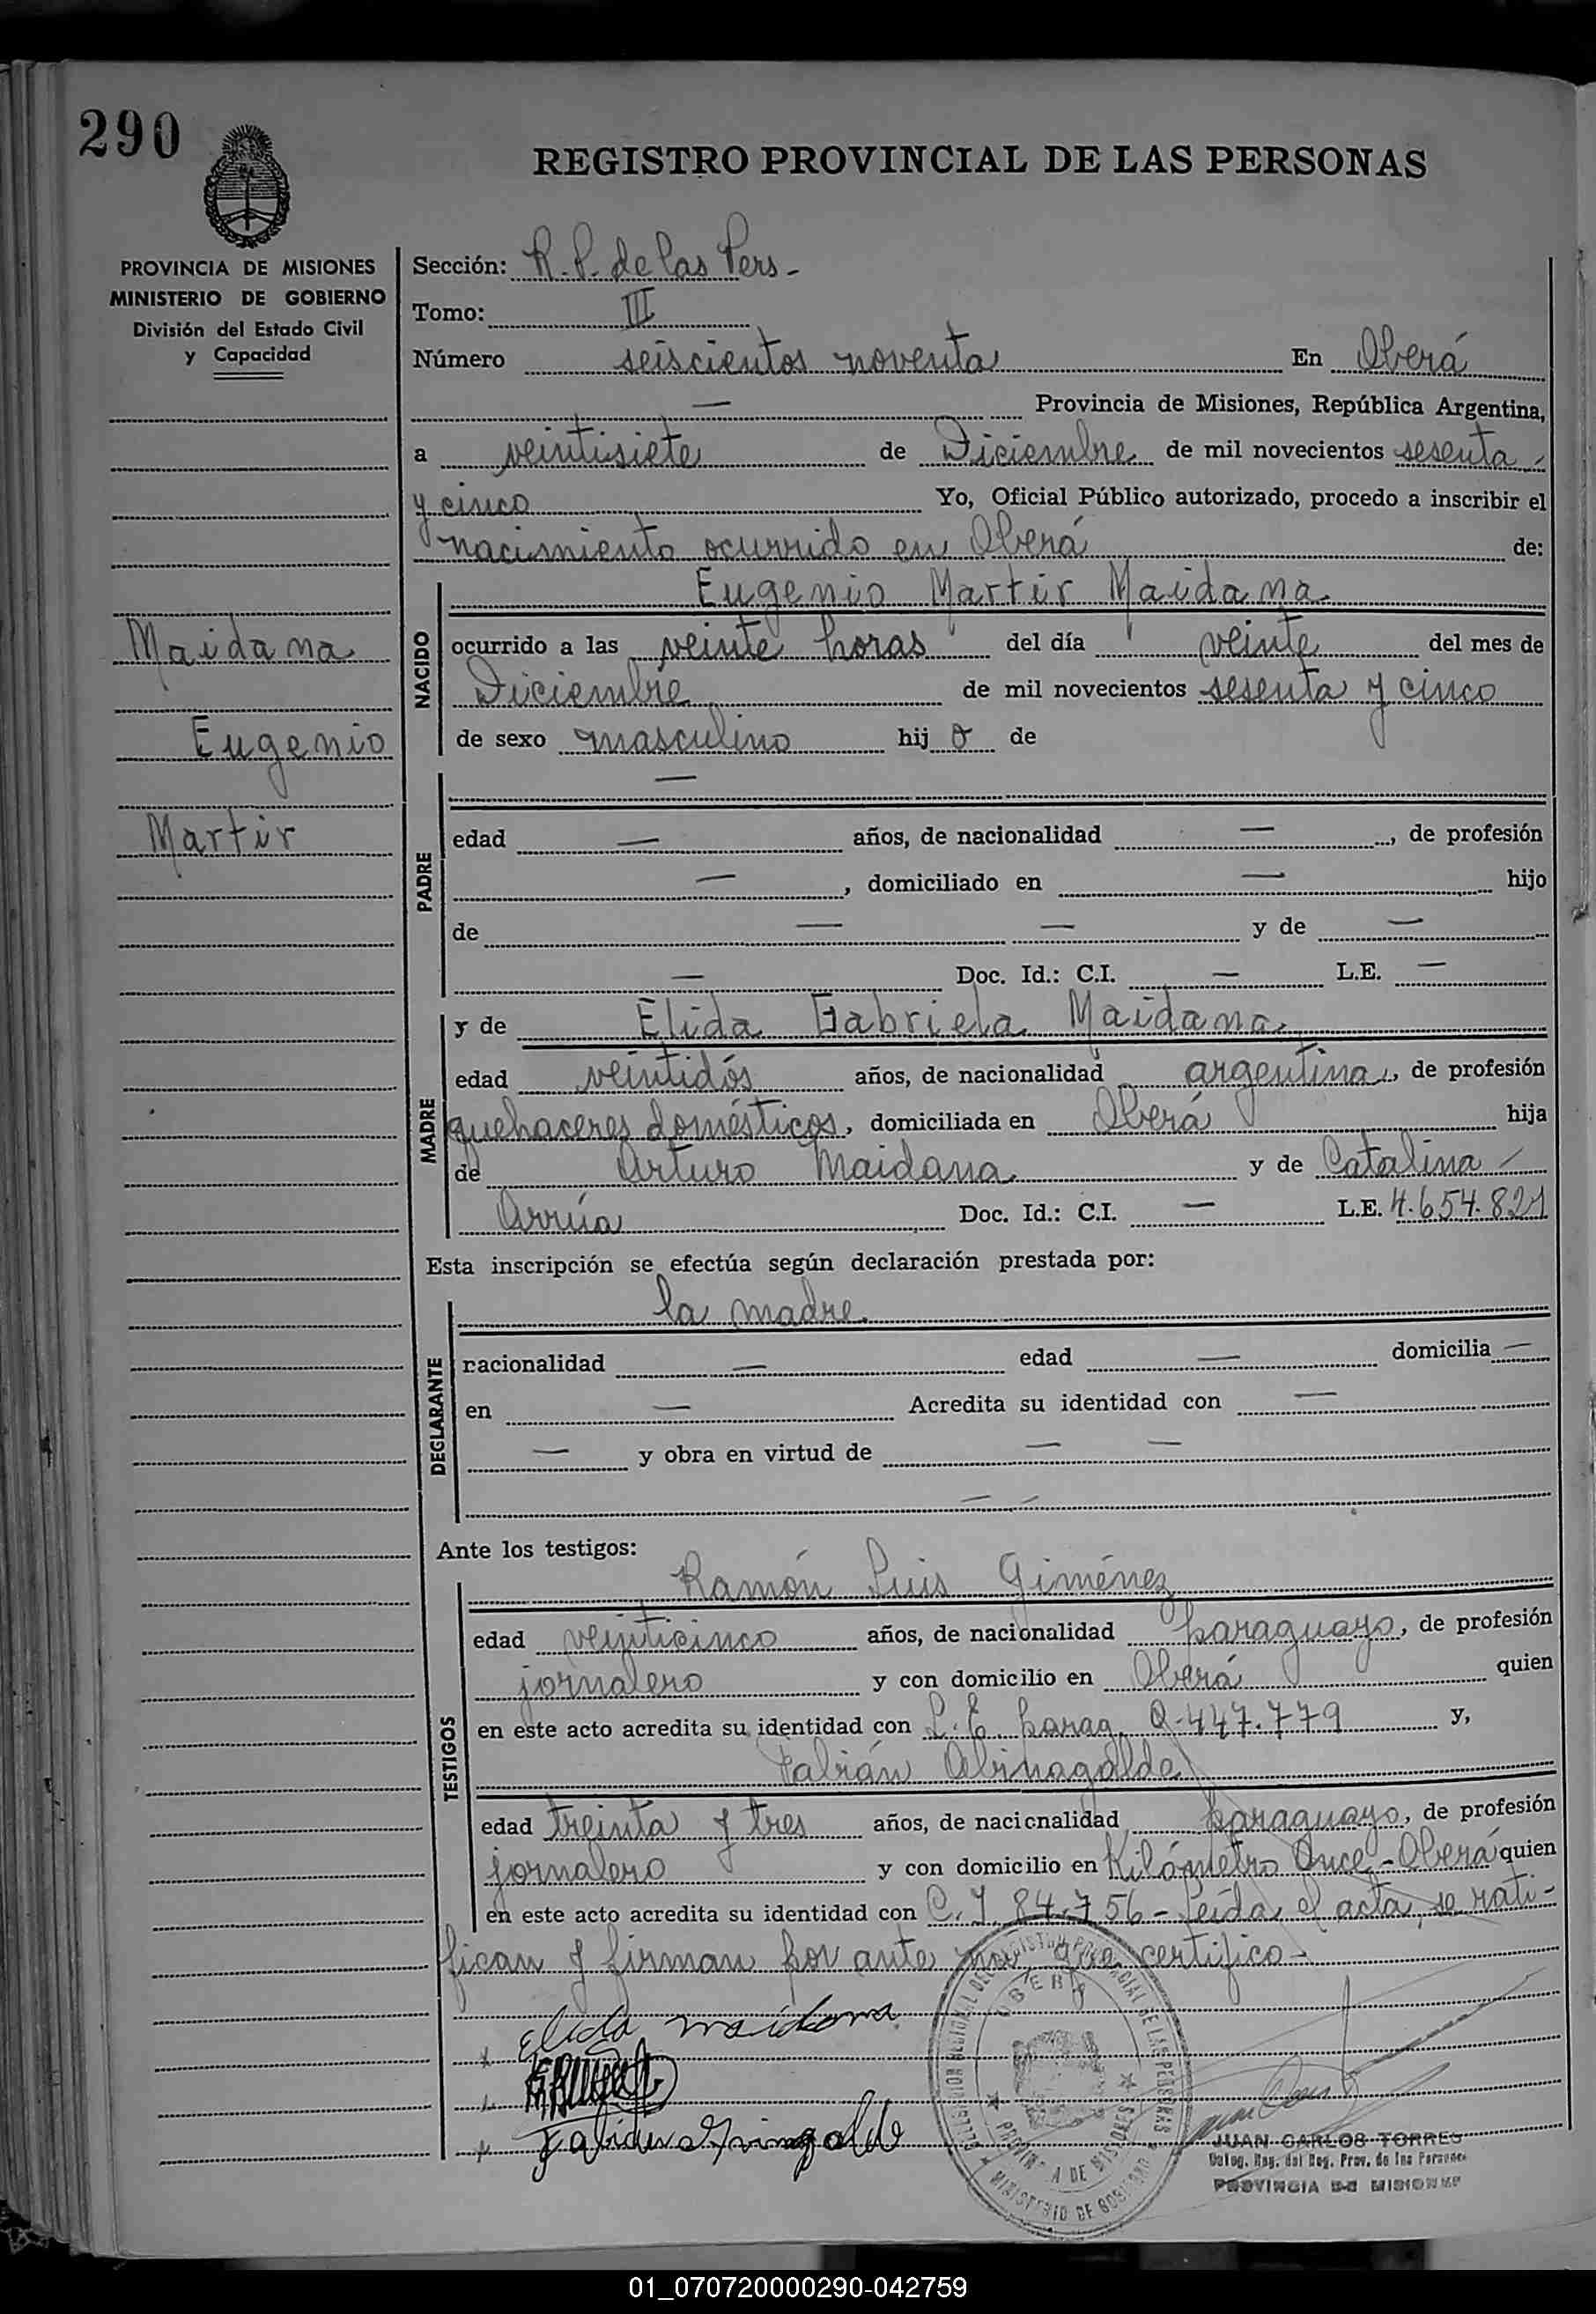 290
REGISTRO PROVINCIAL DE LAS PERSONAS
PROVINCIA DE MISIONES
MINISTERIO DE GOBIERNO
División del Estado Civil
y Capacidad
Maidana
Eugenio
Martir
Sección: R. P. de las Pers -
Tomo: III
Número seiscientos noventa En Oberá
— Provincia de Misiones, República Argentina,
a veintisiete de Diciembre de mil novecientos sesenta
y cinco Yo, Oficial Público autorizado, procedo a inscribir el
nacimiento ocurrido en Oberá de:
NACIDO
Eugenio Martir Maidana
ocurrido a las veinte horas del día veinte del mes de
Diciembre de mil novecientos sesenta y cinco
de sexo masculino hij o de
PADRE
—
edad — años, de nacionalidad —, de profesión
—, domiciliado en — hijo
de — — y de —
— Doc. Id.: C.I. — L.E. —
MADRE
y de Elida Gabriela Maidana
edad veintidós años, de nacionalidad argentina, de profesión
quehaceres domésticos, domiciliada en Oberá hija
de Arturo Maidana y de Catalina
Arrúa Doc. Id.: C.I. — L.E. 4.654.821
Esta inscripción se efectúa según declaración prestada por:
DEGLARANTE
la madre
racionalidad — edad — domicilia —
en — Acredita su identidad con —
— y obra en virtud de — —
— —
Ante los testigos:
TESTIGOS
Ramón Luis Giménez
edad veinticinco años, de nacionalidad paraguayo, de profesión
jornalero y con domicilio en Oberá quien
en este acto acredita su identidad con L. E. parag. 447.779 y,
Fabián
edad treinta y tres años, de nacionalidad paraguayo, de profesión
jornalero y con domicilio en Kilómetro Once - Oberá quien
en este acto acredita su identidad con C. I. 84.756 - Leída el acta, se rati-
fican y firman por ante mí, que certifico -
Elida maidana
OBERÁ
PROVINCIA DE MISIONES
MINISTERIO DE GOBIERNO
JUAN CARLOS TORRES
Deleg. Reg. del Reg. Prov. de las Personas
PROVINCIA DE MISIONES
01_070720000290-042759